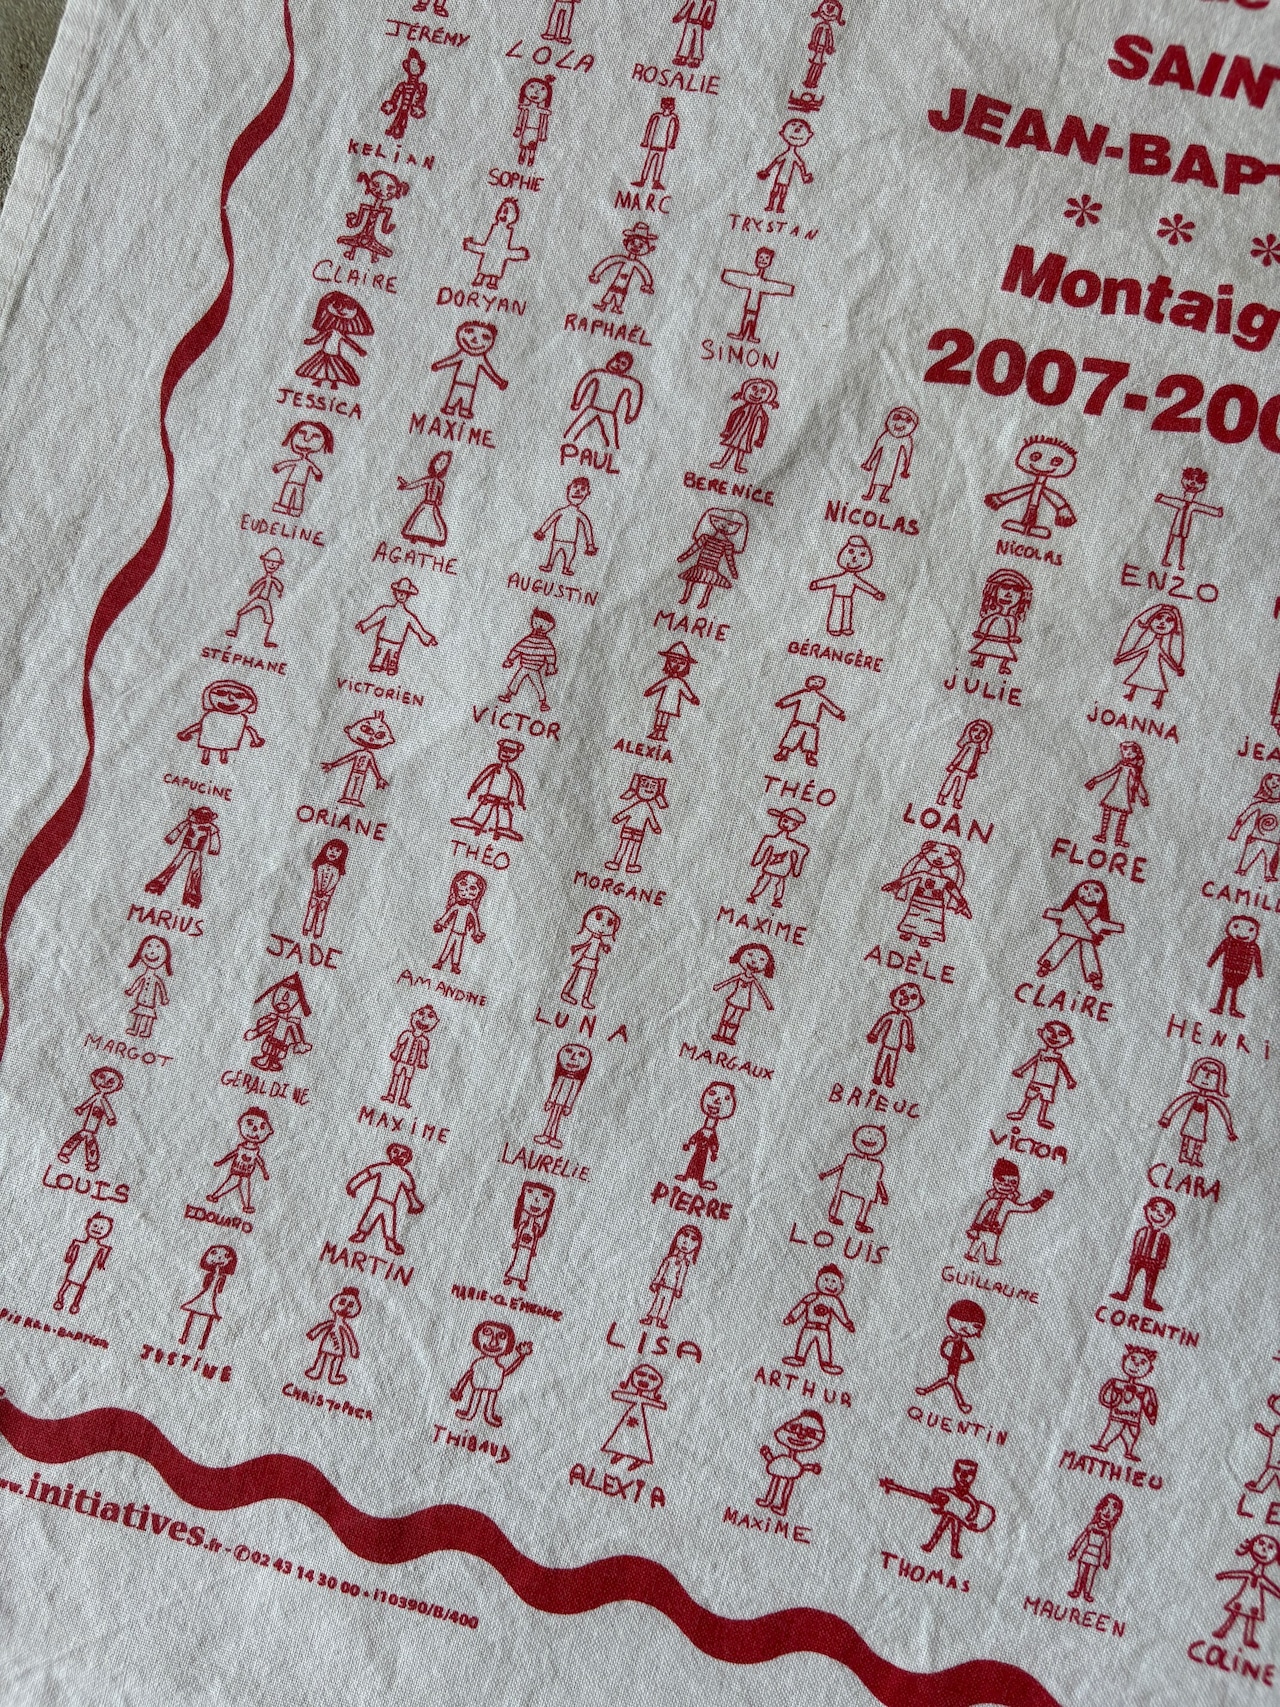 SAIN
JEAN-BAP
* * *
Montaig
2007-200
JÉRÉMY LOLA ROSALIE LOU
KELIAN SOPHIE MARC TRYSTAN
CLAIRE DORYAN RAPHAËL SIMON
JESSICA MAXIME PAUL BERENICE NICOLAS NICOLAS ENZO
EUDELINE AGATHE AUGUSTIN MARIE BÉRANGÈRE JULIE JOANNA JEA
STÉPHANE VICTORIEN VICTOR ALEXIA THÉO LOAN FLORE CAMIL
CAPUCINE ORIANE THÉO MORGANE MAXIME ADÈLE CLAIRE HENRI
MARIUS JADE AMANDINE LUNA MARGAUX BRIEUC VICTOR CLARA
MARGOT GÉRALDINE MAXIME LAURÉLIE PIERRE LOUIS GUILLAUME CORENTIN
LOUIS EDOUARD MARTIN MARIE-CLÉMENCE LISA ARTHUR QUENTIN MATTHIEU LE
PIERRE-BAPTISTE JUSTINE CHRISTOPHER THIBAUD ALEXIA MAXIME THOMAS MAUREEN COLINE
www.initiatives.fr - ✆ 02 43 14 30 00 - i10390/B/400